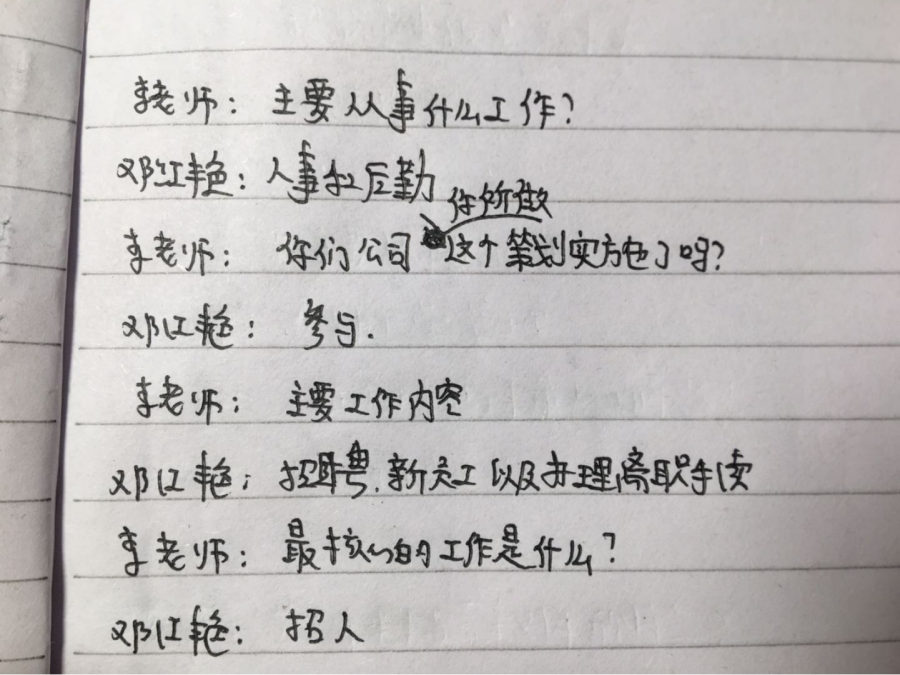 李老师：主要从事什么工作？
邓红艳：人事和后勤
你所做
李老师：你们公司这个策划实施了吗？
邓红艳：参与.
李老师：主要工作内容
邓红艳：招聘.新员工以及办理离职手续
李老师：最核心的工作是什么？
邓红艳：招人